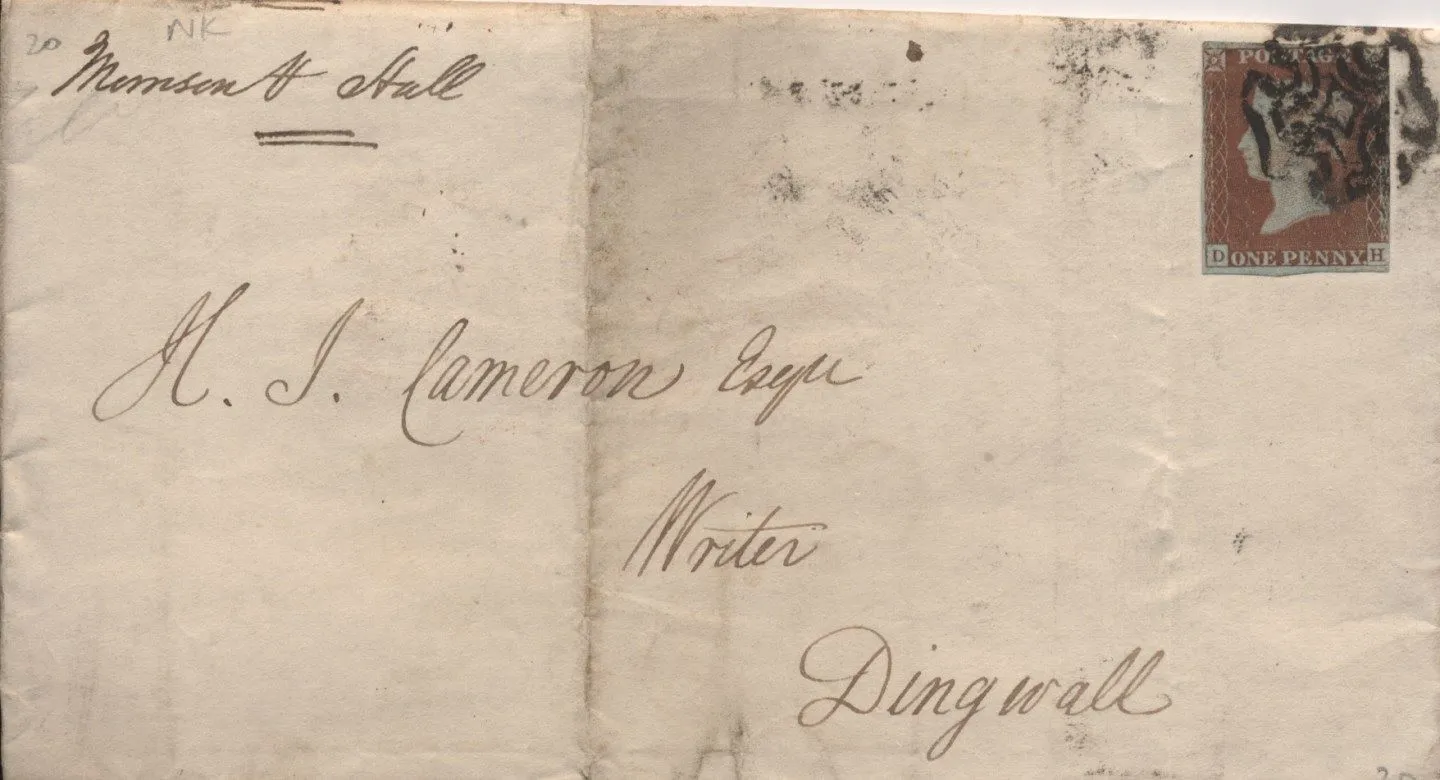 20 NK
Hall
POSTAGE
D ONE PENNY. H
H. J. Cameron Esqre
Writer
Dingwall